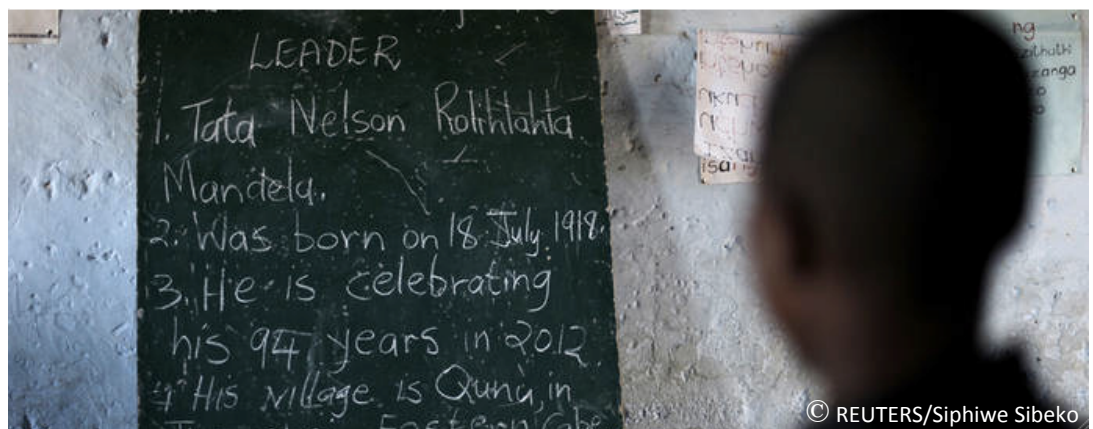 LEADER
1. Tata Nelson Rolihlahla
Mandela.
2. Was born on 18 July 1918.
3. He is celebrating
his 94 years in 2012.
4 His village is Qunu, in
Eastern Cape
ng
zithathi
zanga
o
o
isa
© REUTERS/Siphiwe Sibeko